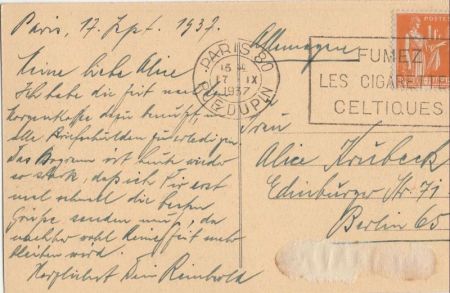 Paris, 17. Sept. 1937.
Meine liebe Alice
Ich habe die Zeit nach der
Morgenkaffee dazu benutzt um
alle Briefschulden zu erledigen
Das Programm ist heute wieder
so stark, daß ich Dir erst
mal schnell die besten
Grüsse senden muß, da
nachher wohl keine Zeit mehr
bleiben wird.
Herzlichst Dein Reinhold
PARIS 80
15 H
17 -IX
1937
R. DUPIN
FUMEZ
LES CIGARETTES
CELTIQUES
POSTES
1F
Allemagne
Frau
Alice Krubeck
Edinburger Str. 71
Berlin 65